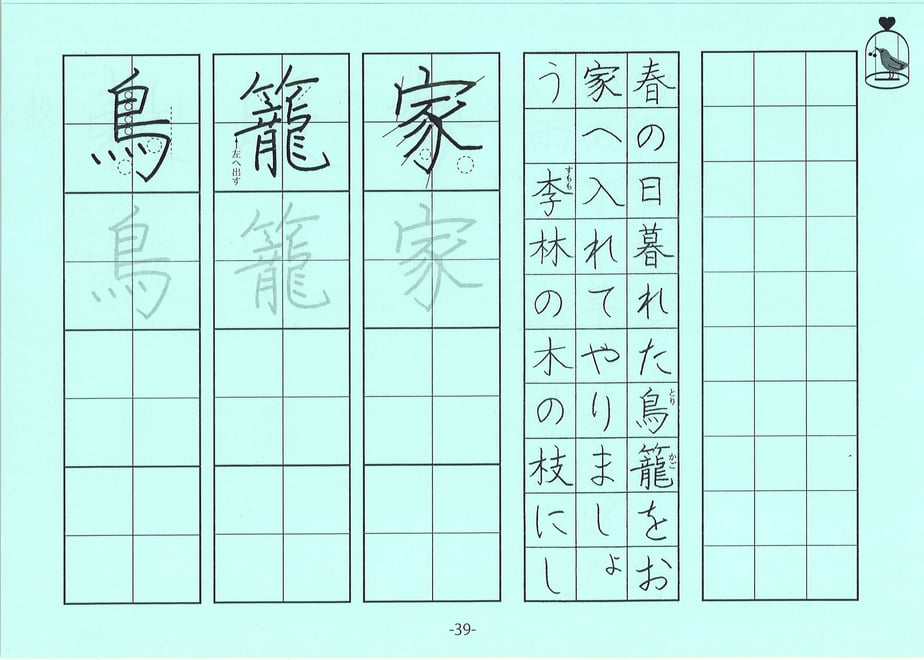 春の日暮れた鳥籠をお
とり
かご
家へ入れてやりましょ
う 李林の木の枝にし
すもも
家
家
籠
左へ出す
籠
鳥
鳥
-39-